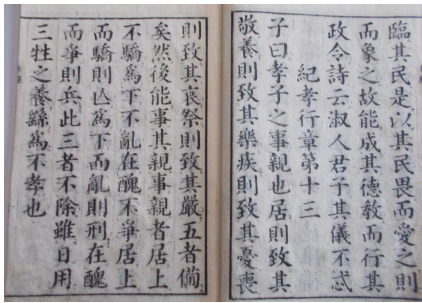 臨其民是以其民畏而愛之則
而象之故能成其德教而行其
政令詩云淑人君子其儀不忒
紀孝行章第十三
子曰孝子之事親也居則致其
敬養則致其樂疾則致其憂喪
則致其哀祭則致其嚴五者備
矣然後能事其親事親者居上
不驕爲下不亂在醜不爭居上
而驕則亡爲下而亂則刑在醜
而爭則兵此三者不除雖日用
三牲之養繇爲不孝也